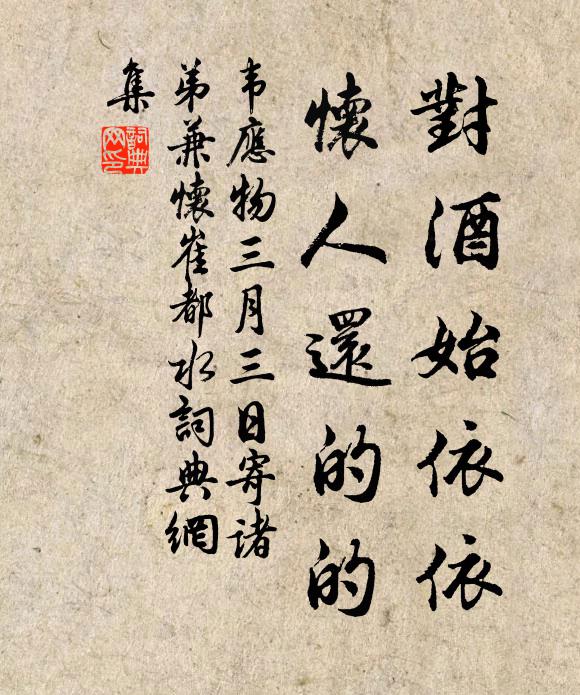 對酒始依依
懷人還的的
韦應物三月三日寄诸
弟兼懷崔都水詞典網
集
詞典网印